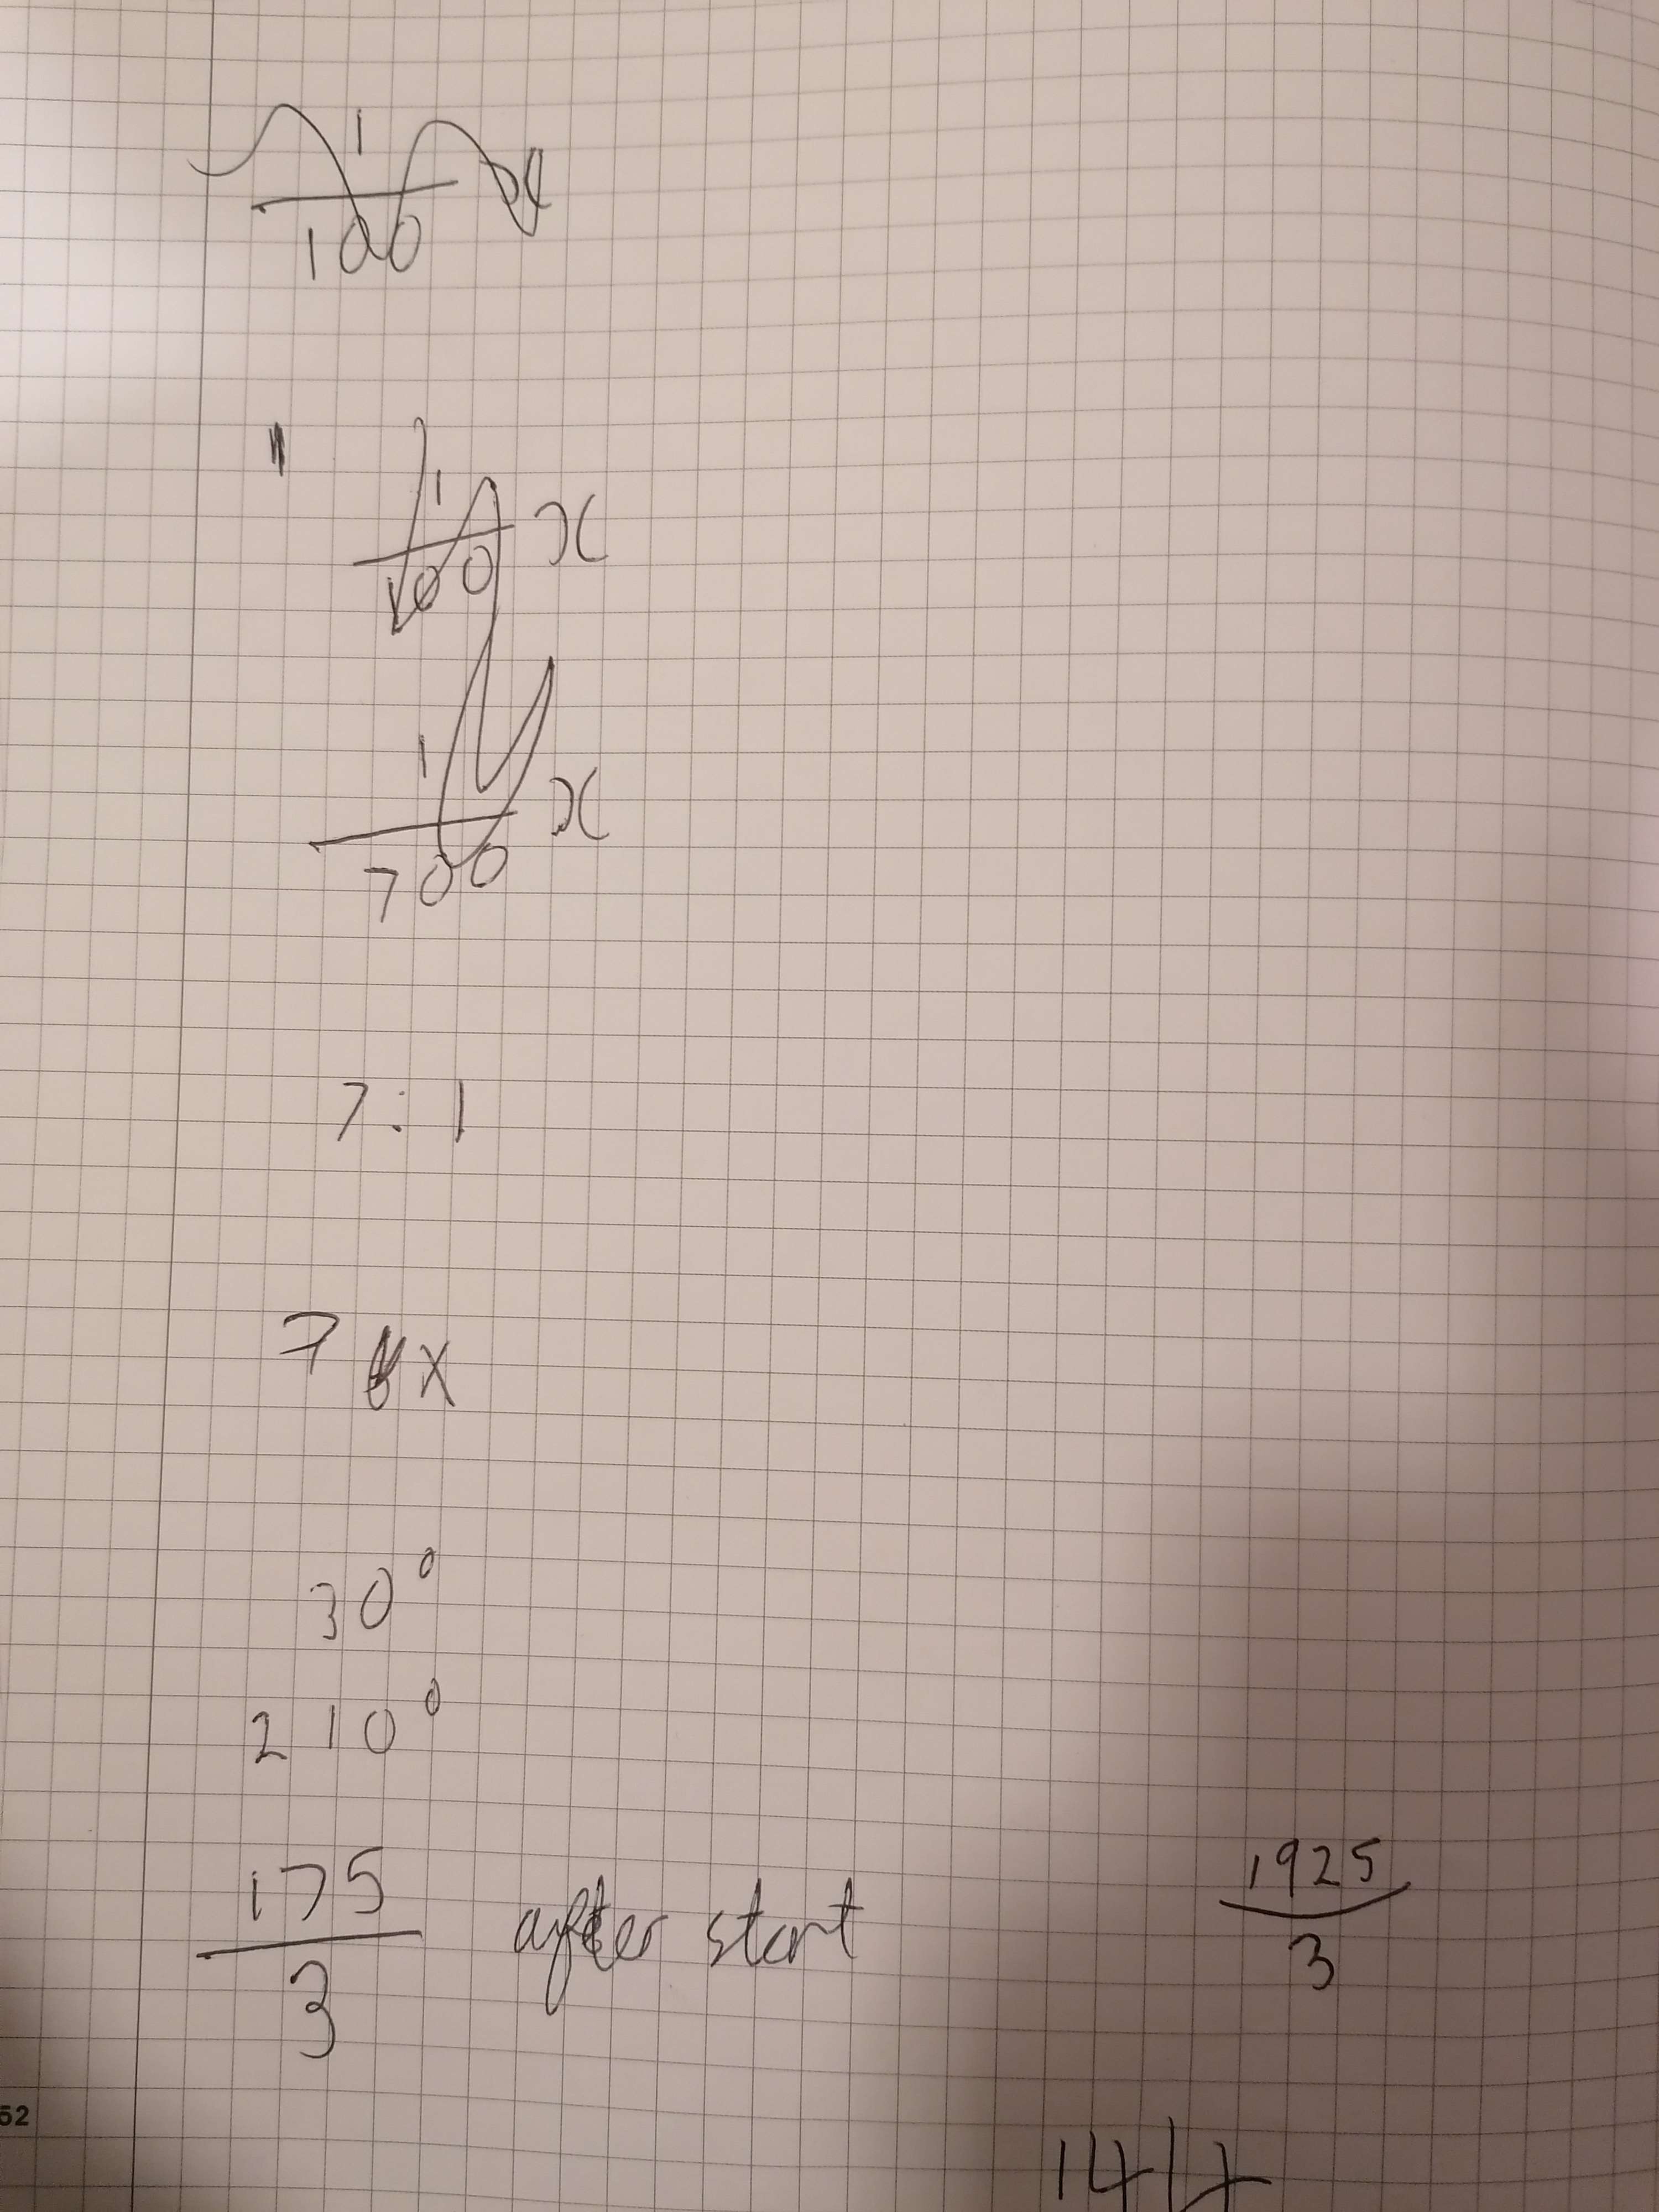 1
100 x
1
100 x
1
700 x
7 : 1
7 x
30°
210°
175
3
after start
1925
3
52
144